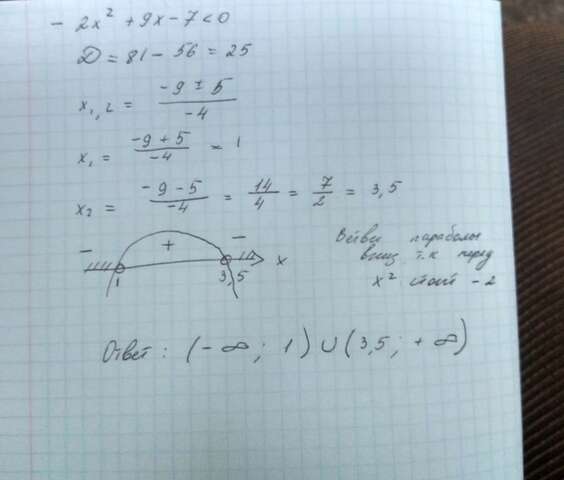 - 2x² + 9x - 7 < 0
D = 81 - 56 = 25
x₁,₂ = (-9 ± 5)/(-4)
x₁ = (-9 + 5)/(-4) = 1
x₂ = (-9 - 5)/(-4) = 14/4 = 7/2 = 3,5
- + - x
1 3,5
Ветви параболы
вниз т.к перед
x² стоит - 2
Ответ : (- ∞ ; 1) ∪ (3,5 ; + ∞)